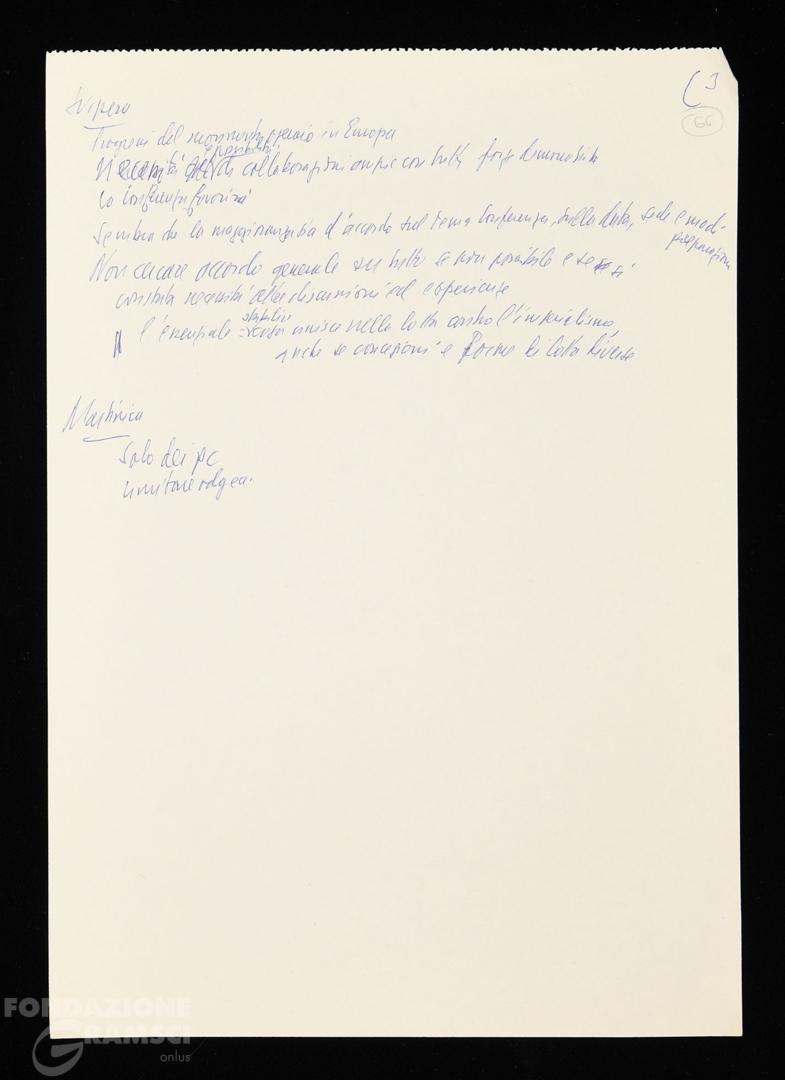 3
66
Svizera
Progressi del movimento operaio in Europa
possibilità
Necessità di collaborazioni ampie con tutte forze democratiche
La Conferenza favorirà
Sembra che la maggioranza sia d'accordo sul tema Conferenza, sulla data, sede e modi
preparazione
Non cercare accordo generale su tutto se non possibile e se si
constata necessità altre discussioni ed esperienze
stabilire
l'essenziale = cosa unisce nella lotta contro l'imperialismo,
anche se concezioni e forme di lotta diverse
Martinica
Solo dei pc
limitare odg ca.
FONDAZIONE
GRAMSCI
onlus